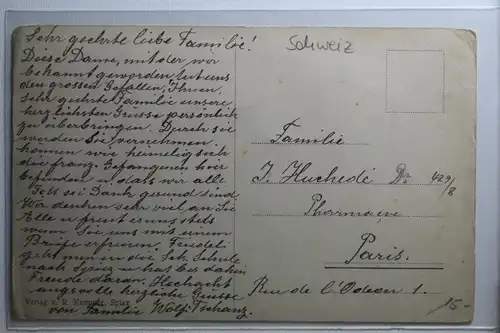 Sehr geehrte liebe Familie!
Diese Dame, mit der wir
bekannt geworden tut uns
den grossen Gefallen, Ihnen,
sehr geehrte Familie unsere
herzlichsten Grüsse persönlich
zu überbringen. Durch sie
werden Sie vernehmen
können wie heimelig sich
die franz. Gefangenen hier
befinden u. dass wir alle
Gott sei Dank gesund sind.
Wir denken sehr viel an Sie
Alle u. freut er uns stets
wenn Sie uns mit einem
Briefe erfreuen. Friedeli
geht nun in die Sek. Schule
nach Spiez u. hat bis dahin
Freude daran. Hochacht
ungsvolle herzliche Grüsse
von Familie Wolf-Tschanz.
Verlag v. R. Spiez
Schweiz
Familie
J. Huchedé
429/8
Pharmacie
Paris.
Rue de l'Odéon 1.
15.-